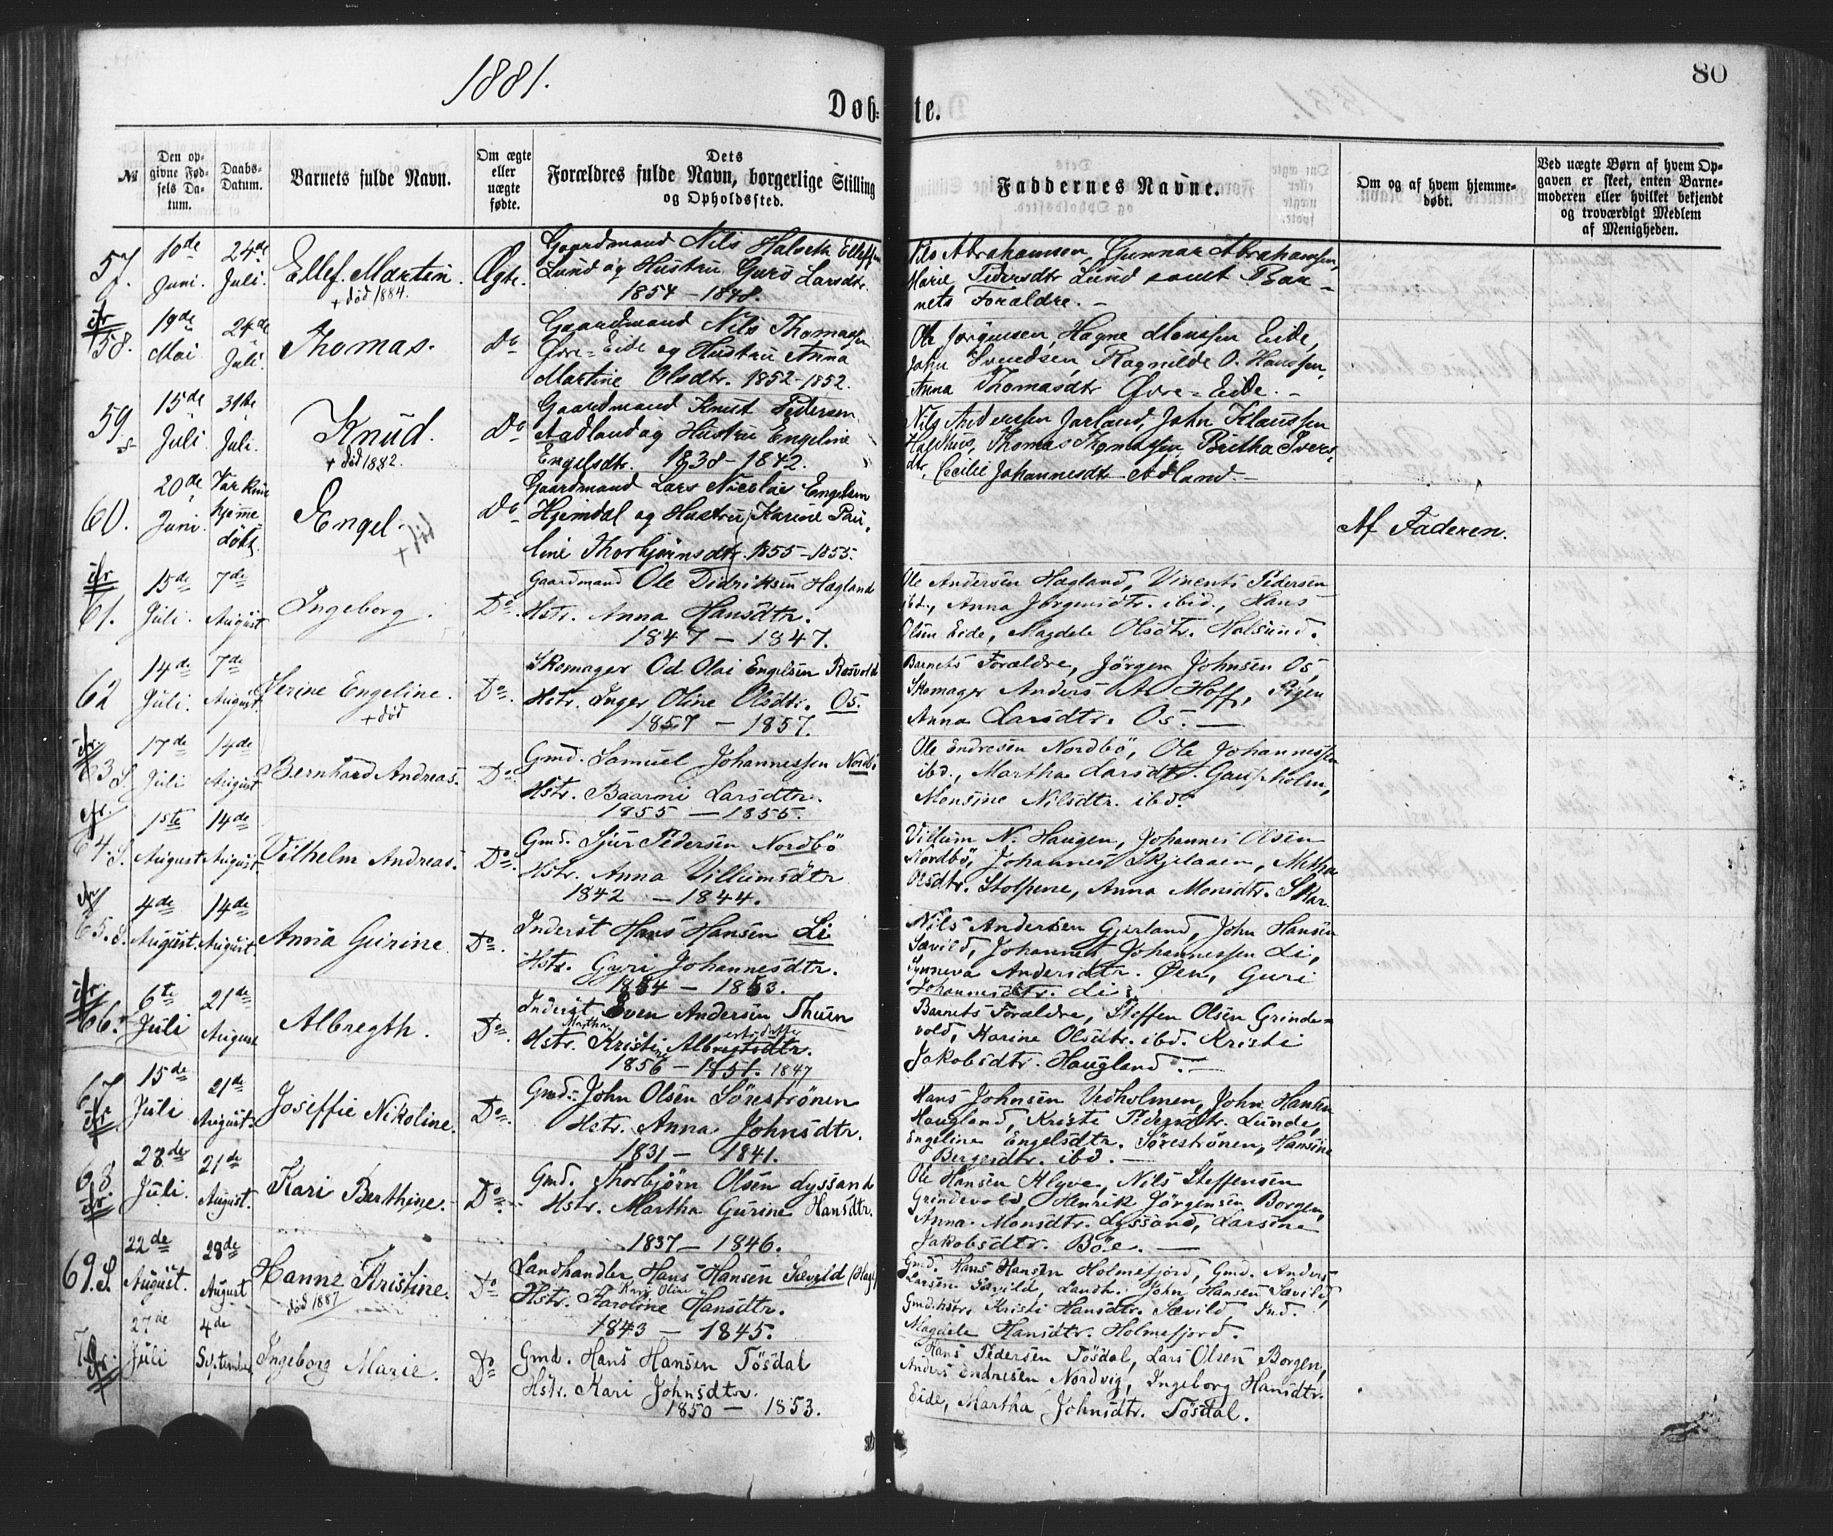 1881.
80
Døb-te.
№
Den opgivne Fødsels Datum.
Daabs-Datum.
Barnets fulde Navn.
Om ægte eller uægte fødte.
Dets Forældres fulde Navn, borgerlige Stilling og Opholdssted.
Faddernes Navne.
Om og af hvem hjemmedøbt.
Ved uægte Børn af hvem Opgaven er skeet, enten Barnemoderen eller hvilket bekjendt og troværdigt Medlem af Menigheden.
57. 10de Juni. 24de Juli. Ellef Martin. + død 1884. Ægte.
Gaardmand Nils Halvek Elleffsen
Lund og Hustru Guro Larsdtr.
1854 – 1848.
Nils Abrahamsen, Gunnar Abrahamsen,
Marie Pedersdtr Lund samt Bar-
nets Forældre. –
58. 19de Mai 24de Juli. Thomas. Do
Gaardmand Nils Thomassen
Øvre-Eide og Hustru Anna
Martine Olsdtr. 1852-1852.
Ole Jørgensen, Hagne Monsen Eide,
John Svendsen, Ragnilde O. Hansen,
Anna Thomasdtr Øvre-Eide. –
59. s 15de Juli 31te Juli. Knud. + død 1882. Do
Gaardmand Knut Pedersen
Aadland og Hustru Engeline
Engelsdtr. 1838-1842.
Nils Anderssen Jarland, John Klaussen
Thomas Thomassen, Birtha Ivers-
dtr, Cecilie Johannesdtr Adland. –
60. 20de Juni. Var kun hjemme døbt. Engel. + død Do
Gaardmand Lars Nicolai Engelsen
Hjemdal og Hustru Karine Pau-
line Thorbjørnsdtr. 1855-1855.
Af Faderen.
61. 15de Juli. 7de August Ingeborg. Do.
Gaardmand Ole Didriksen Hagland
Hstr. Anna Hansdtr.
1847 – 1847.
Ole Andersen Hagland, Vincents Pedersen
ibd., Anna Jørgensdtr. ibid., Hans
Olsen Eide, Magdele Olsdtr. Holsund.
62 14de Juli. 7de August. Serine Engeline. + død Do.
Skomager Od Olai Engelsen Rosvold
Hstr. Inger Oline Olsdtr. Os.
1857 – 1857.
Barnets Forældre, Jörgen Johnsen Os,
Skomager Anders A. Hoff, Pigen
Anna Larsdtr. Os. –
63. S 17de Juli 14de August Bernhard Andreas. Do.
Gmd. Samuel Johannessen Nordbö
Hstr. Baarni Larsdtr.
1855 – 1855.
Ole Endresen Nordbö, Ole Johannessen
ibd., Martha Larsdtr. Gaupholm,
Monsine Nilsdtr. ibd.
64. S. 1ste August 14de August. Vilhelm Andreas. Do.
Gmd. Sjur Pedersen Nordbö
Hstr. Anna Villumsdtr
1842 – 1844.
Villum N. Haugen, Johannes Olsen
Nordbö, Johannes Skjelaaen, Metha
Olsdtr. Stolpene, Anna Monsdtr. Skar.
65. S. 4de August. 14de August. Anna Gurine. Do.
Inderst Hans Hansen Li
Hstr. Guri Johannesdtr.
1854 – 1853.
Nils Andersen Gjerland, John Hansen
Sævild, Johannes Johannessen Li,
Synneva Andersdtr. Øen, Guri
Johannesdtr. Li.
66. 6te Juli 21de August Albregth. Do.
Inderst Sven Andersen Thuen
Hstr. Martha Kristi Albregtsdtr.
1856 – 1851. 1847
Barnets Forældre, Steffen Olsen Grinde-
vold, Karine Olsdtr. ibd. Kristi
Jakobsdtr. Haugland. –
67. 15de Juli 21de August. Joseffie Nikoline. Do.
Gmd. John Olsen Söreströnen
Hstr. Anna Johnsdtr.
1831 – 1841.
Hans Johnsen Vedholmen, John Hansen
Haugland, Kristi Pedersdtr. Lunde,
Engeline Engelsdtr. Söreströnen, Hansine
Bergesdtr. ibd. –
68. 28de Juli. 21de August. Kari Berthine. Do.
Gmd. Thorbjörn Olsen Lyssand
Hstr. Martha Gurine Hansdtr.
1837 – 1846.
Ole Hansen Klyve, Nils Steffensen
Grindevold, Henrik Jörgensen Borgen,
Anna Monsdtr. Lyssand, Larsine
Jakobsdtr. Böe. –
69. S. 22de August. 28de August Hanne Kristine. død 1887 Do
Landhandler Hans Hansen Sævild
Hstr. Karoline Hansdtr.
1843 – 1845.
Gmd. Hans Hansen Holmefjord, Gmd. Anders
Larsen Sævild, Landh. John Hansen Sævild,
Gmd.hstr. Kristi Hansdtr. Sævild Ind.
Magdele Hansdtr. Holmefjord.
70. 27de Juli 4de September Ingeborg Marie. Do
Gmd. Hans Hansen Tösdal
Hstr. Kari Johnsdtr.
1850 – 1853.
Hans Pedersen Tösdal, Lars Olsen Borgen,
Anders Endresen Nordvig, Ingeborg Hansdtr.
Eide, Martha Johnsdtr. Tösdal.